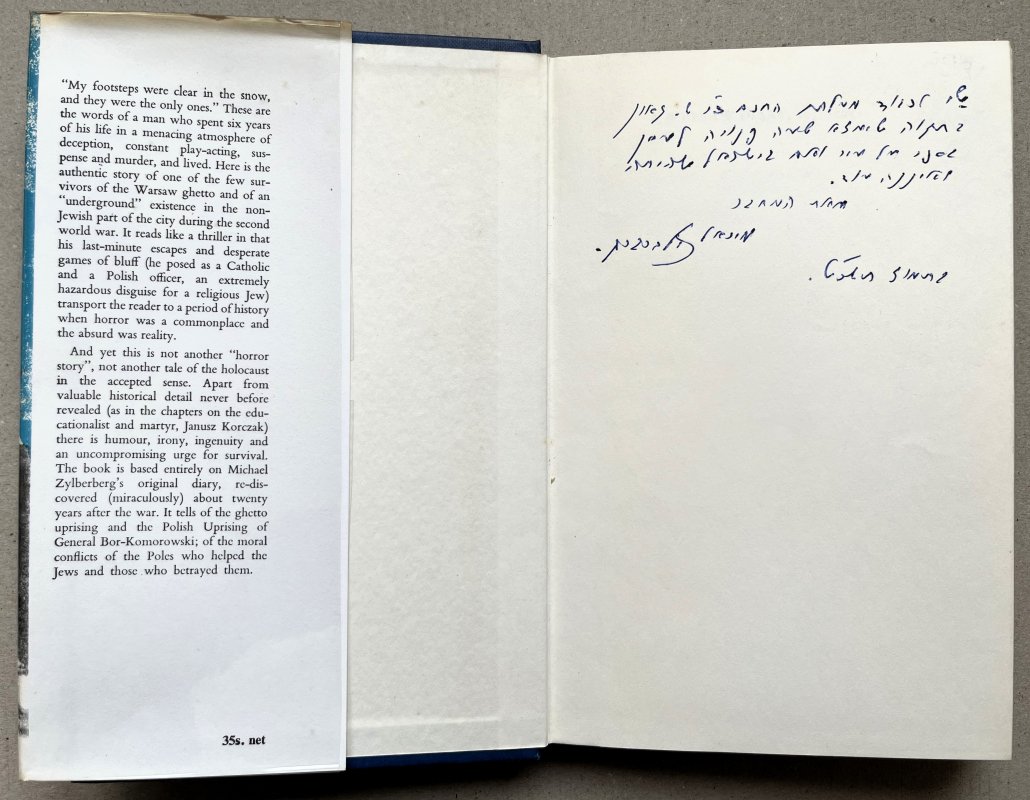 "My footsteps were clear in the snow,
and they were the only ones." These are
the words of a man who spent six years
of his life in a menacing atmosphere of
deception, constant play-acting, sus-
pense and murder, and lived. Here is the
authentic story of one of the few sur-
vivors of the Warsaw ghetto and of an
"underground" existence in the non-
Jewish part of the city during the second
world war. It reads like a thriller in that
his last-minute escapes and desperate
games of bluff (he posed as a Catholic
and a Polish officer, an extremely
hazardous disguise for a religious Jew)
transport the reader to a period of history
when horror was a commonplace and
the absurd was reality.
And yet this is not another "horror
story", not another tale of the holocaust
in the accepted sense. Apart from
valuable historical detail never before
revealed (as in the chapters on the edu-
cationalist and martyr, Janusz Korczak)
there is humour, irony, ingenuity and
an uncompromising urge for survival.
The book is based entirely on Michael
Zylberberg's original diary, re-dis-
covered (miraculously) about twenty
years after the war. It tells of the ghetto
uprising and the Polish Uprising of
General Bor-Komorowski; of the moral
conflicts of the Poles who helped the
Jews and those who betrayed them.
35s. net
שי לכבוד מעלת החכם ד"ר ש. גאון
בתקוה שימצא שעה פנויה לעיין
בספרי על עיר ואם בישראל שהיתה
ואיננה עוד.
מאת המחבר
מיכאל זילברברג.
בתמוז תשכ"ט.